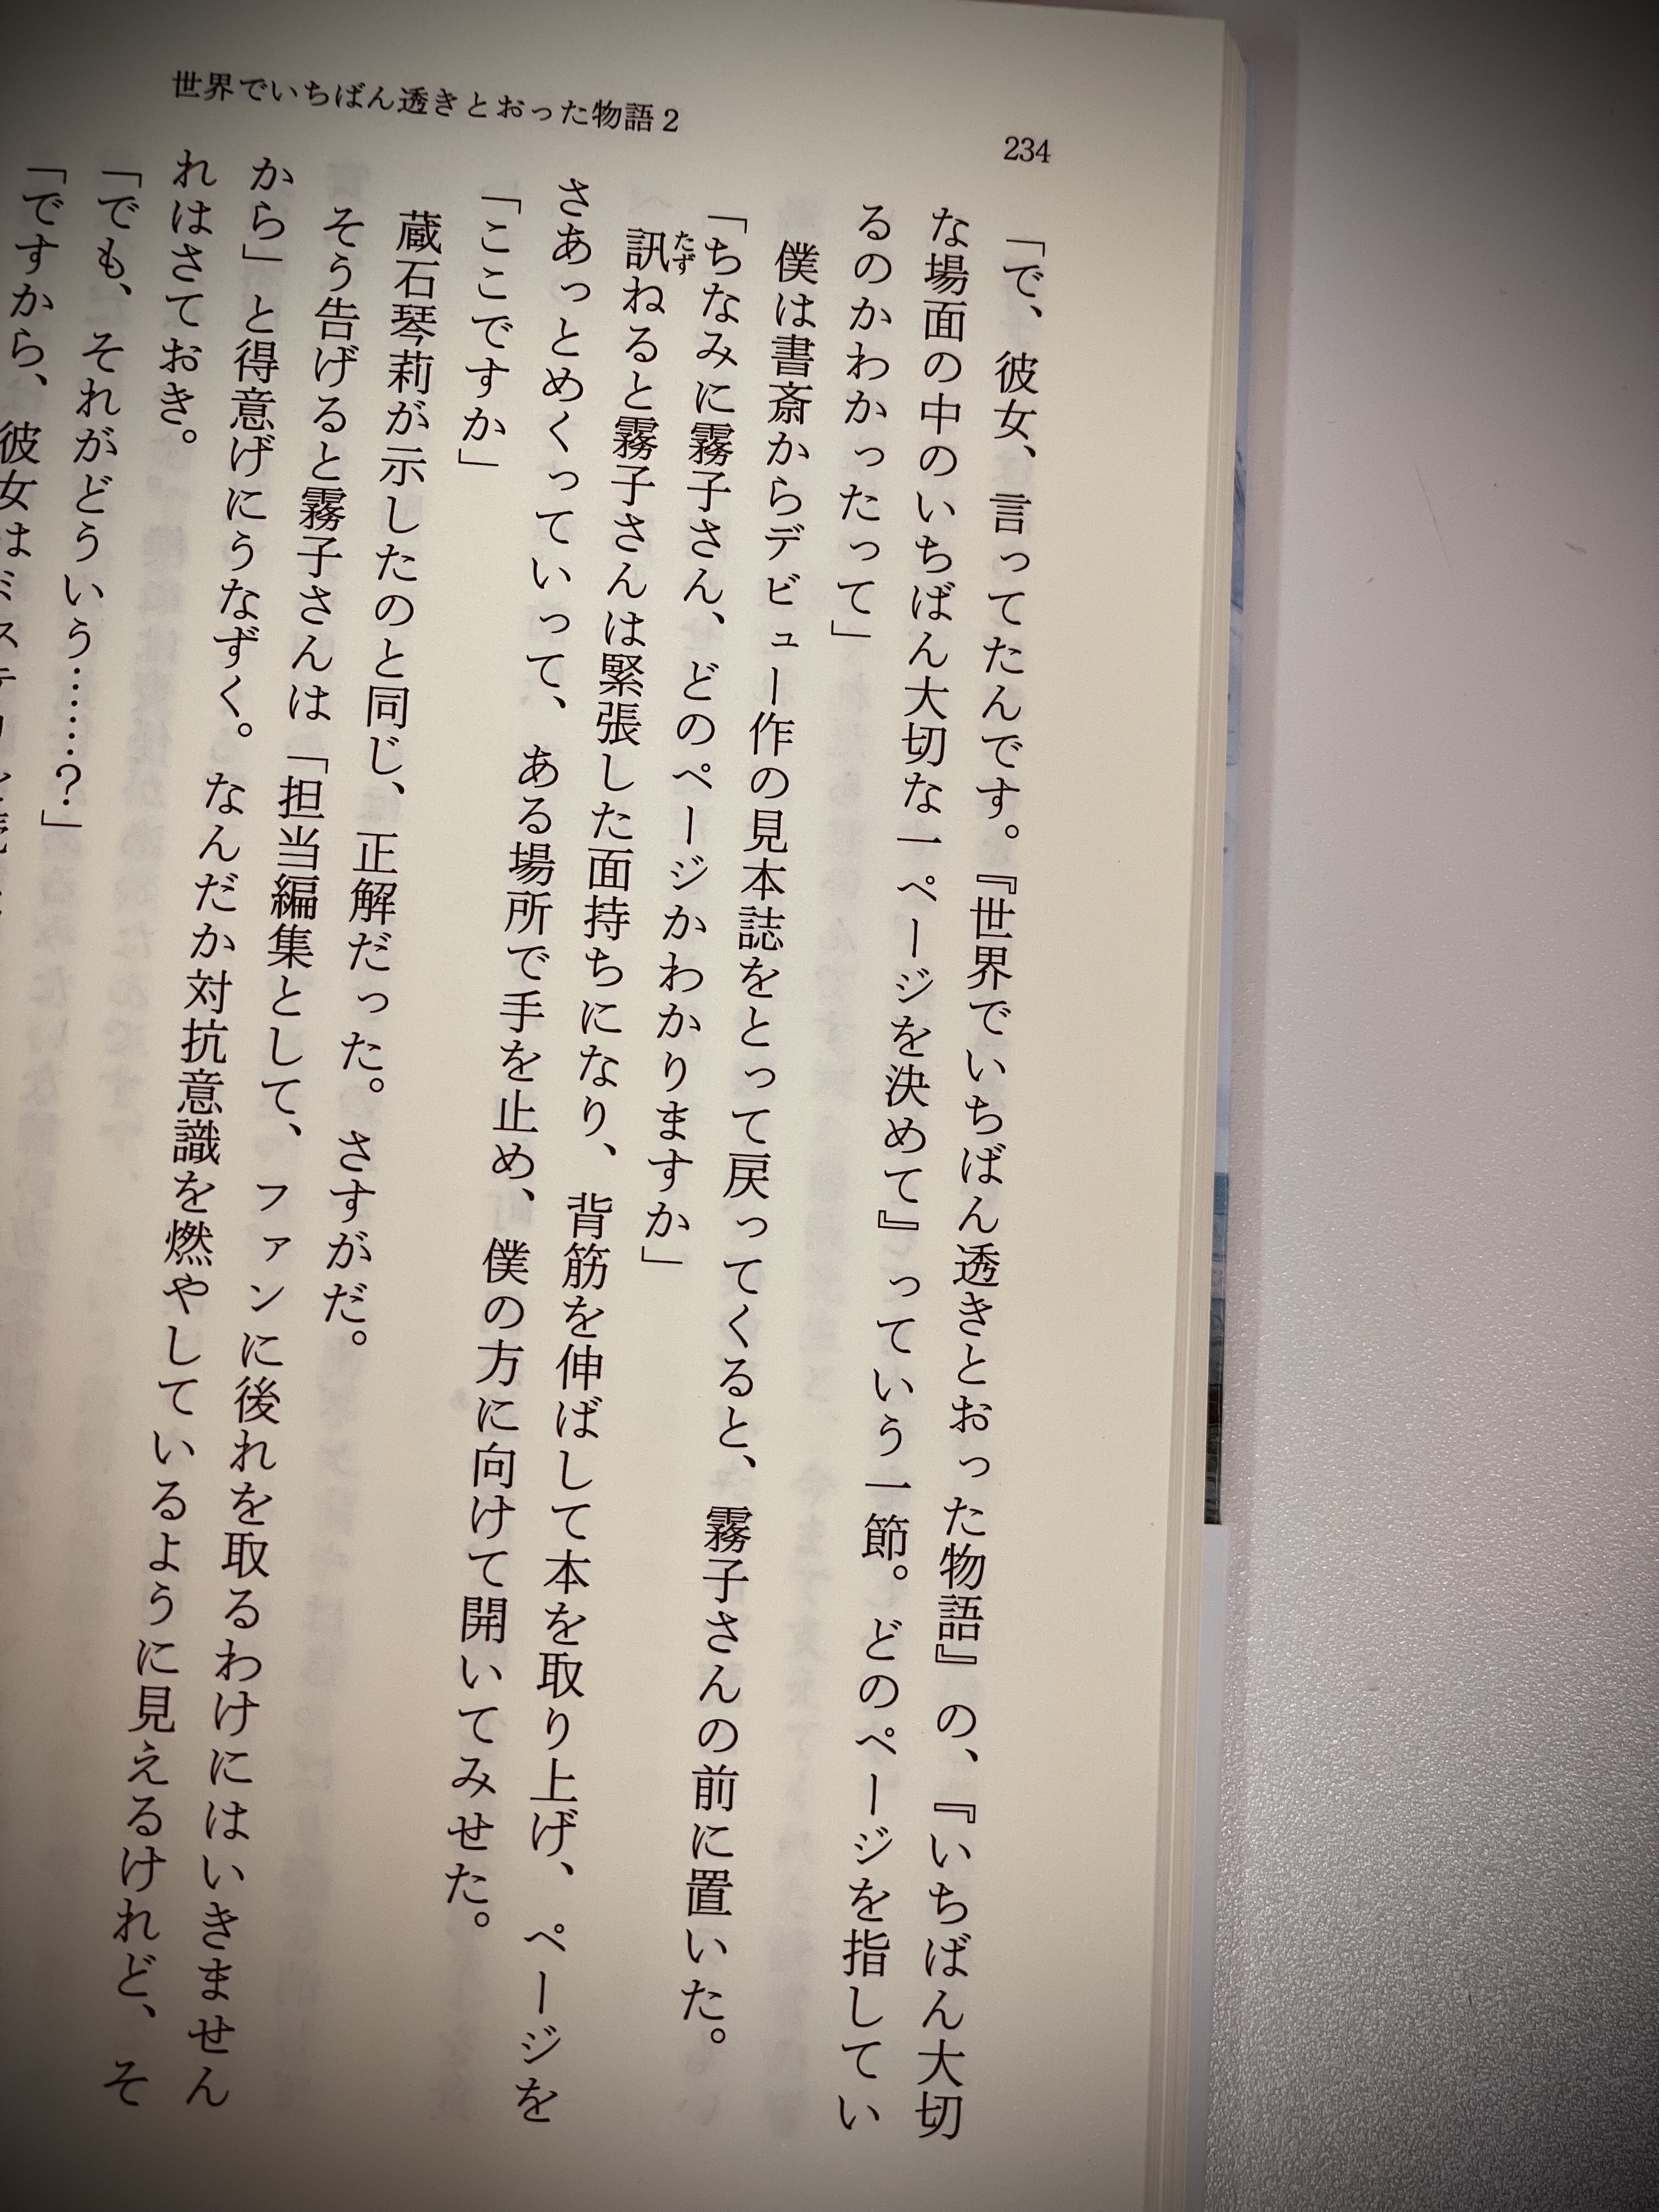 世界でいちばん透きとおった物語2
234
「で、彼女、言ってたんです。『世界でいちばん透きとおった物語』の、『いちばん大切
な場面の中のいちばん大切な一ページを決めて』っていう一節。どのページを指してい
るのかわかったって」
僕は書斎からデビュー作の見本誌をとって戻ってくると、霧子さんの前に置いた。
「ちなみに霧子さん、どのページかわかりますか」
訊ねると霧子さんは緊張した面持ちになり、背筋を伸ばして本を取り上げ、ページを
たず
さあっとめくっていって、ある場所で手を止め、僕の方に向けて開いてみせた。
「ここですか」
蔵石琴莉が示したのと同じ、正解だった。さすがだ。
そう告げると霧子さんは「担当編集として、ファンに後れを取るわけにはいきません
から」と得意げにうなずく。なんだか対抗意識を燃やしているように見えるけれど、そ
れはさておき。
「でも、それがどういう……？」
「ですから、彼女は